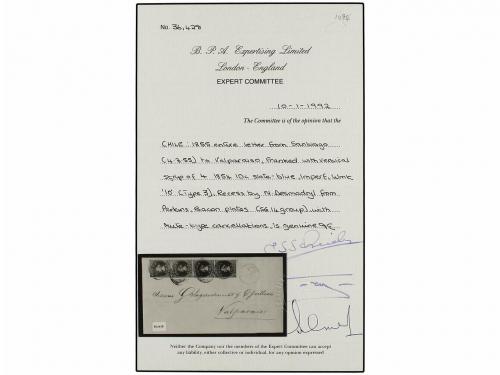 1092
No. 36,428
B. P. A. Expertising Limited
London - England
EXPERT COMMITTEE
10-1-1992
The Committee is of the opinion that the
CHILE: 1855 entire letter from Santiago
(4.7.55) to Valparaiso, franked with vertical
strip of 4 1854 10c slate-blue, imperf, Wmk
'10' (Type 3), Recess by N. Desmadryl from
Perkins, Bacon plates (SG 14 group) with
mute-type cancellations, is genuine
Valparaiso
Neither the Company nor the members of the Expert Committee can accept
any liability, either collective or individual, for any opinion expressed